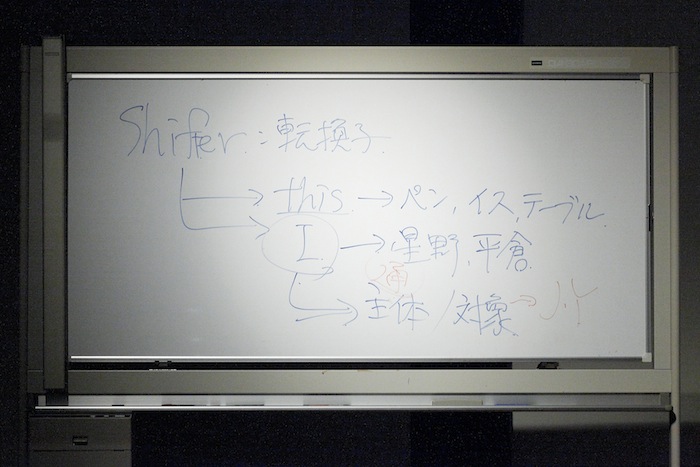 Shifer:転換子
this → ペン,イス,テーブル
I → 星野,平倉
主体/対象 →